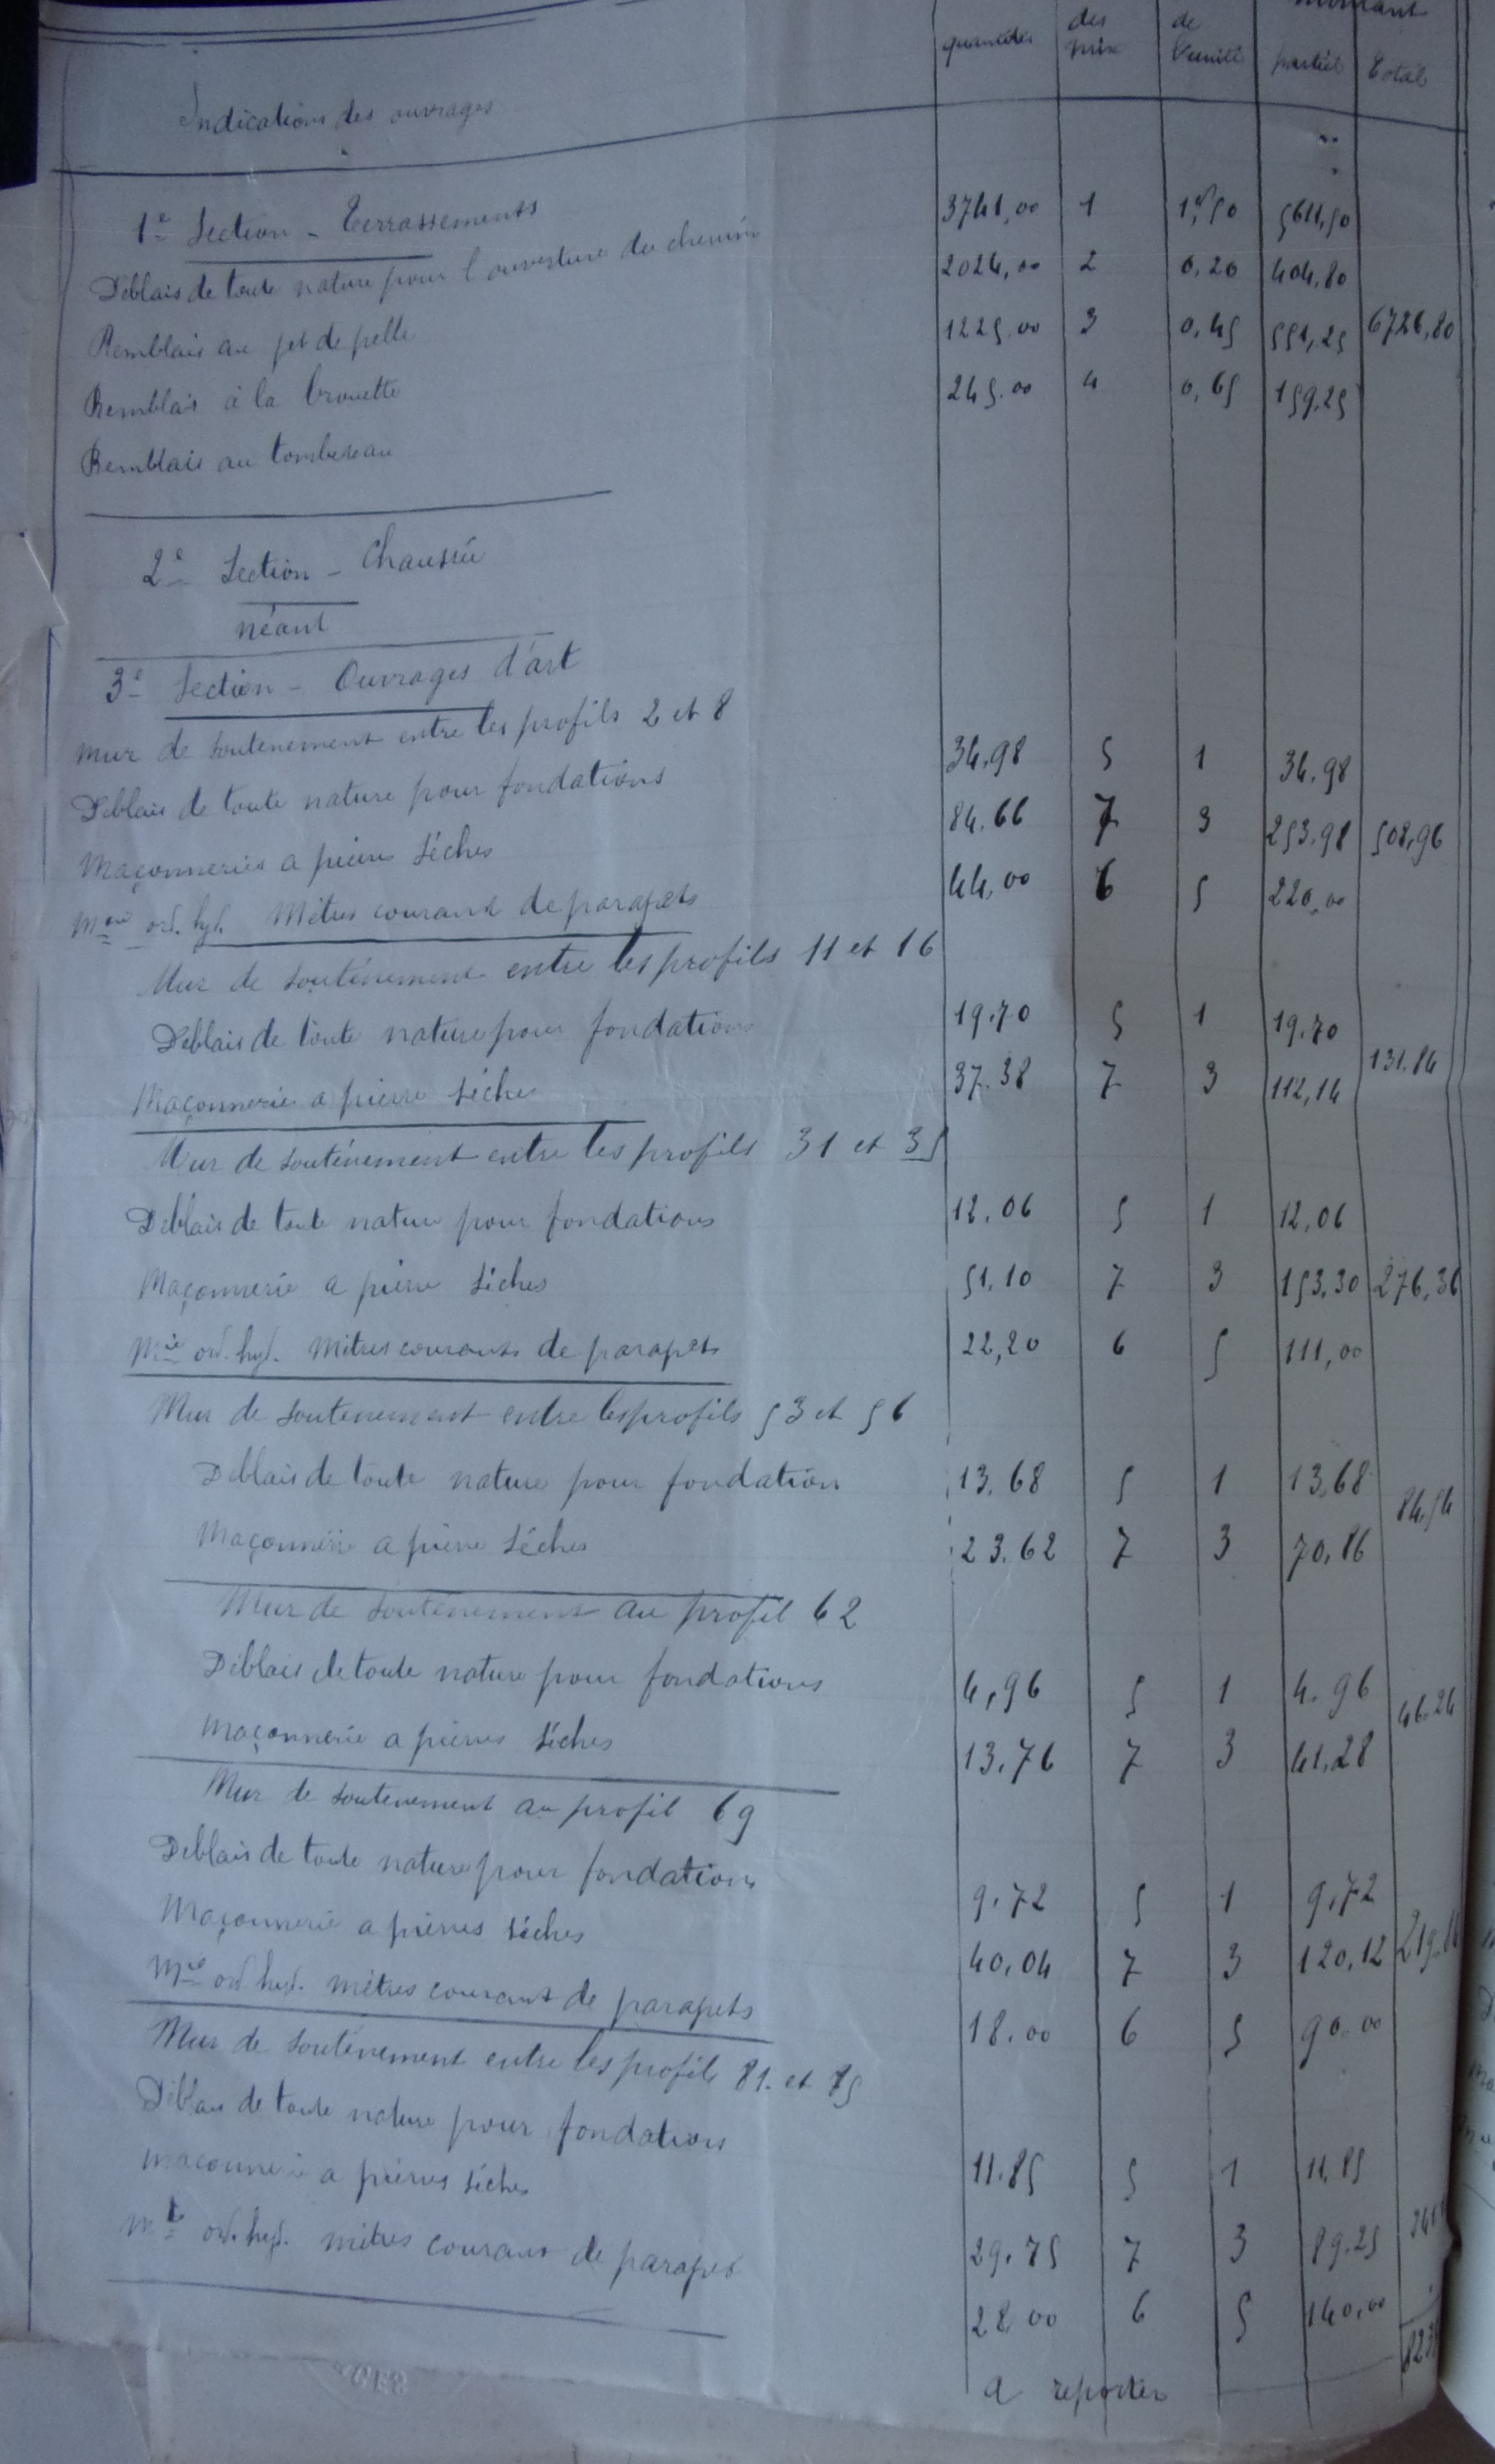 Indications des ouvrages quantités des prix de l'unité montant partiel total
1e Section - Terrassements
Déblais de toute nature pour l'ouverture du chemin 3741,00 1 1f,50 5611,50
Remblais au jet de pelle 2024,00 2 0,20 404,80
Remblais à la brouette 1225.00 3 0,45 551,25 6726,80
Remblais au tombereau 245.00 4 0,65 159,25
2e Section - Chaussée
néant
3e Section - Ouvrages d'art
Mur de soutenement entre les profils 2 et 8
Déblais de toute nature pour fondations 34,98 5 1 34,98
Maçonneries a pierres sèches 84.66 7 3 253,98 508,96
Mon̲e̲ ord. hyd. Mètres courant de parapets 44,00 6 5 220,00
Mur de soutènement entre les profils 11 et 16
Déblais de toute nature pour fondations 19.70 5 1 19.70
Maçonnerie a pierre sèche 37.38 7 3 112,14 131.84
Mur de soutènement entre les profils 31 et 35
Déblais de toute nature pour fondations 12.06 5 1 12,06
Maçonnerie a pierre sèches 51.10 7 3 153.30 276,36
Mie ord. hyd. Mètres courants de parapets 22,20 6 5 111,00
Mur de soutenement entre les profils 53 et 56
Déblais de toute nature pour fondation 13.68 5 1 13,68
Maçonnerie a pierre sèches 23.62 7 3 70,86 84,54
Mur de soutènement au profil 62
Déblais de toute nature pour fondations 4,96 5 1 4.96
Maçonnerie a pierres sèches 13.76 7 3 41,28 46.24
Mur de soutenement au profil 69
Déblais de toute nature pour fondations 9.72 5 1 9,72
Maçonnerie a pierres sèches 40,04 7 3 120,12
Mie ord. hyd. mètres courants de parapets 18.00 6 5 90.00
Mur de soutènement entre les profils 81. et 85
Déblais de toute nature pour fondations 11.85 5 1 11.85
maçonnerie a pierres sèches 29.75 7 3 89.25
Mie ord. hyd. mètres courant de parapet 28.00 6 5 140,00
a reporter